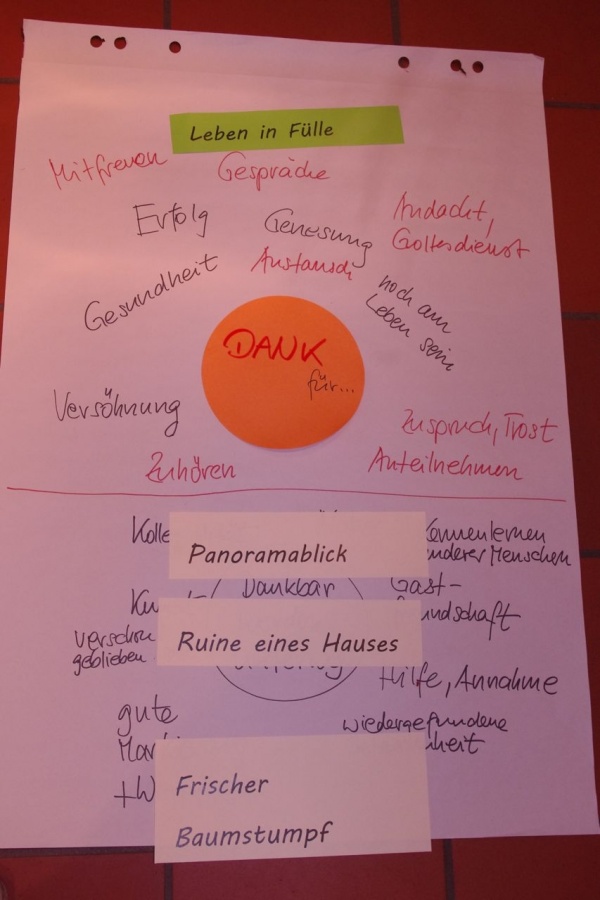 Leben in Fülle
Mitfreuen
Gespräche
Erfolg
Genesung
Andacht,
Gottesdienst
Gesundheit
Austausch
noch am
Leben sein
DANK
für...
Versöhnung
Zuspruch, Trost
Zuhören
Anteilnehmen
Kolle
Panoramablick
Kennenlernen
anderer Menschen
Dankbar
Gast-
undschaft
Ruine eines Hauses
verschon
geblieben
Hilfe, Annahme
gute
wiedergefundene
heit
+W
Frischer
Baumstumpf